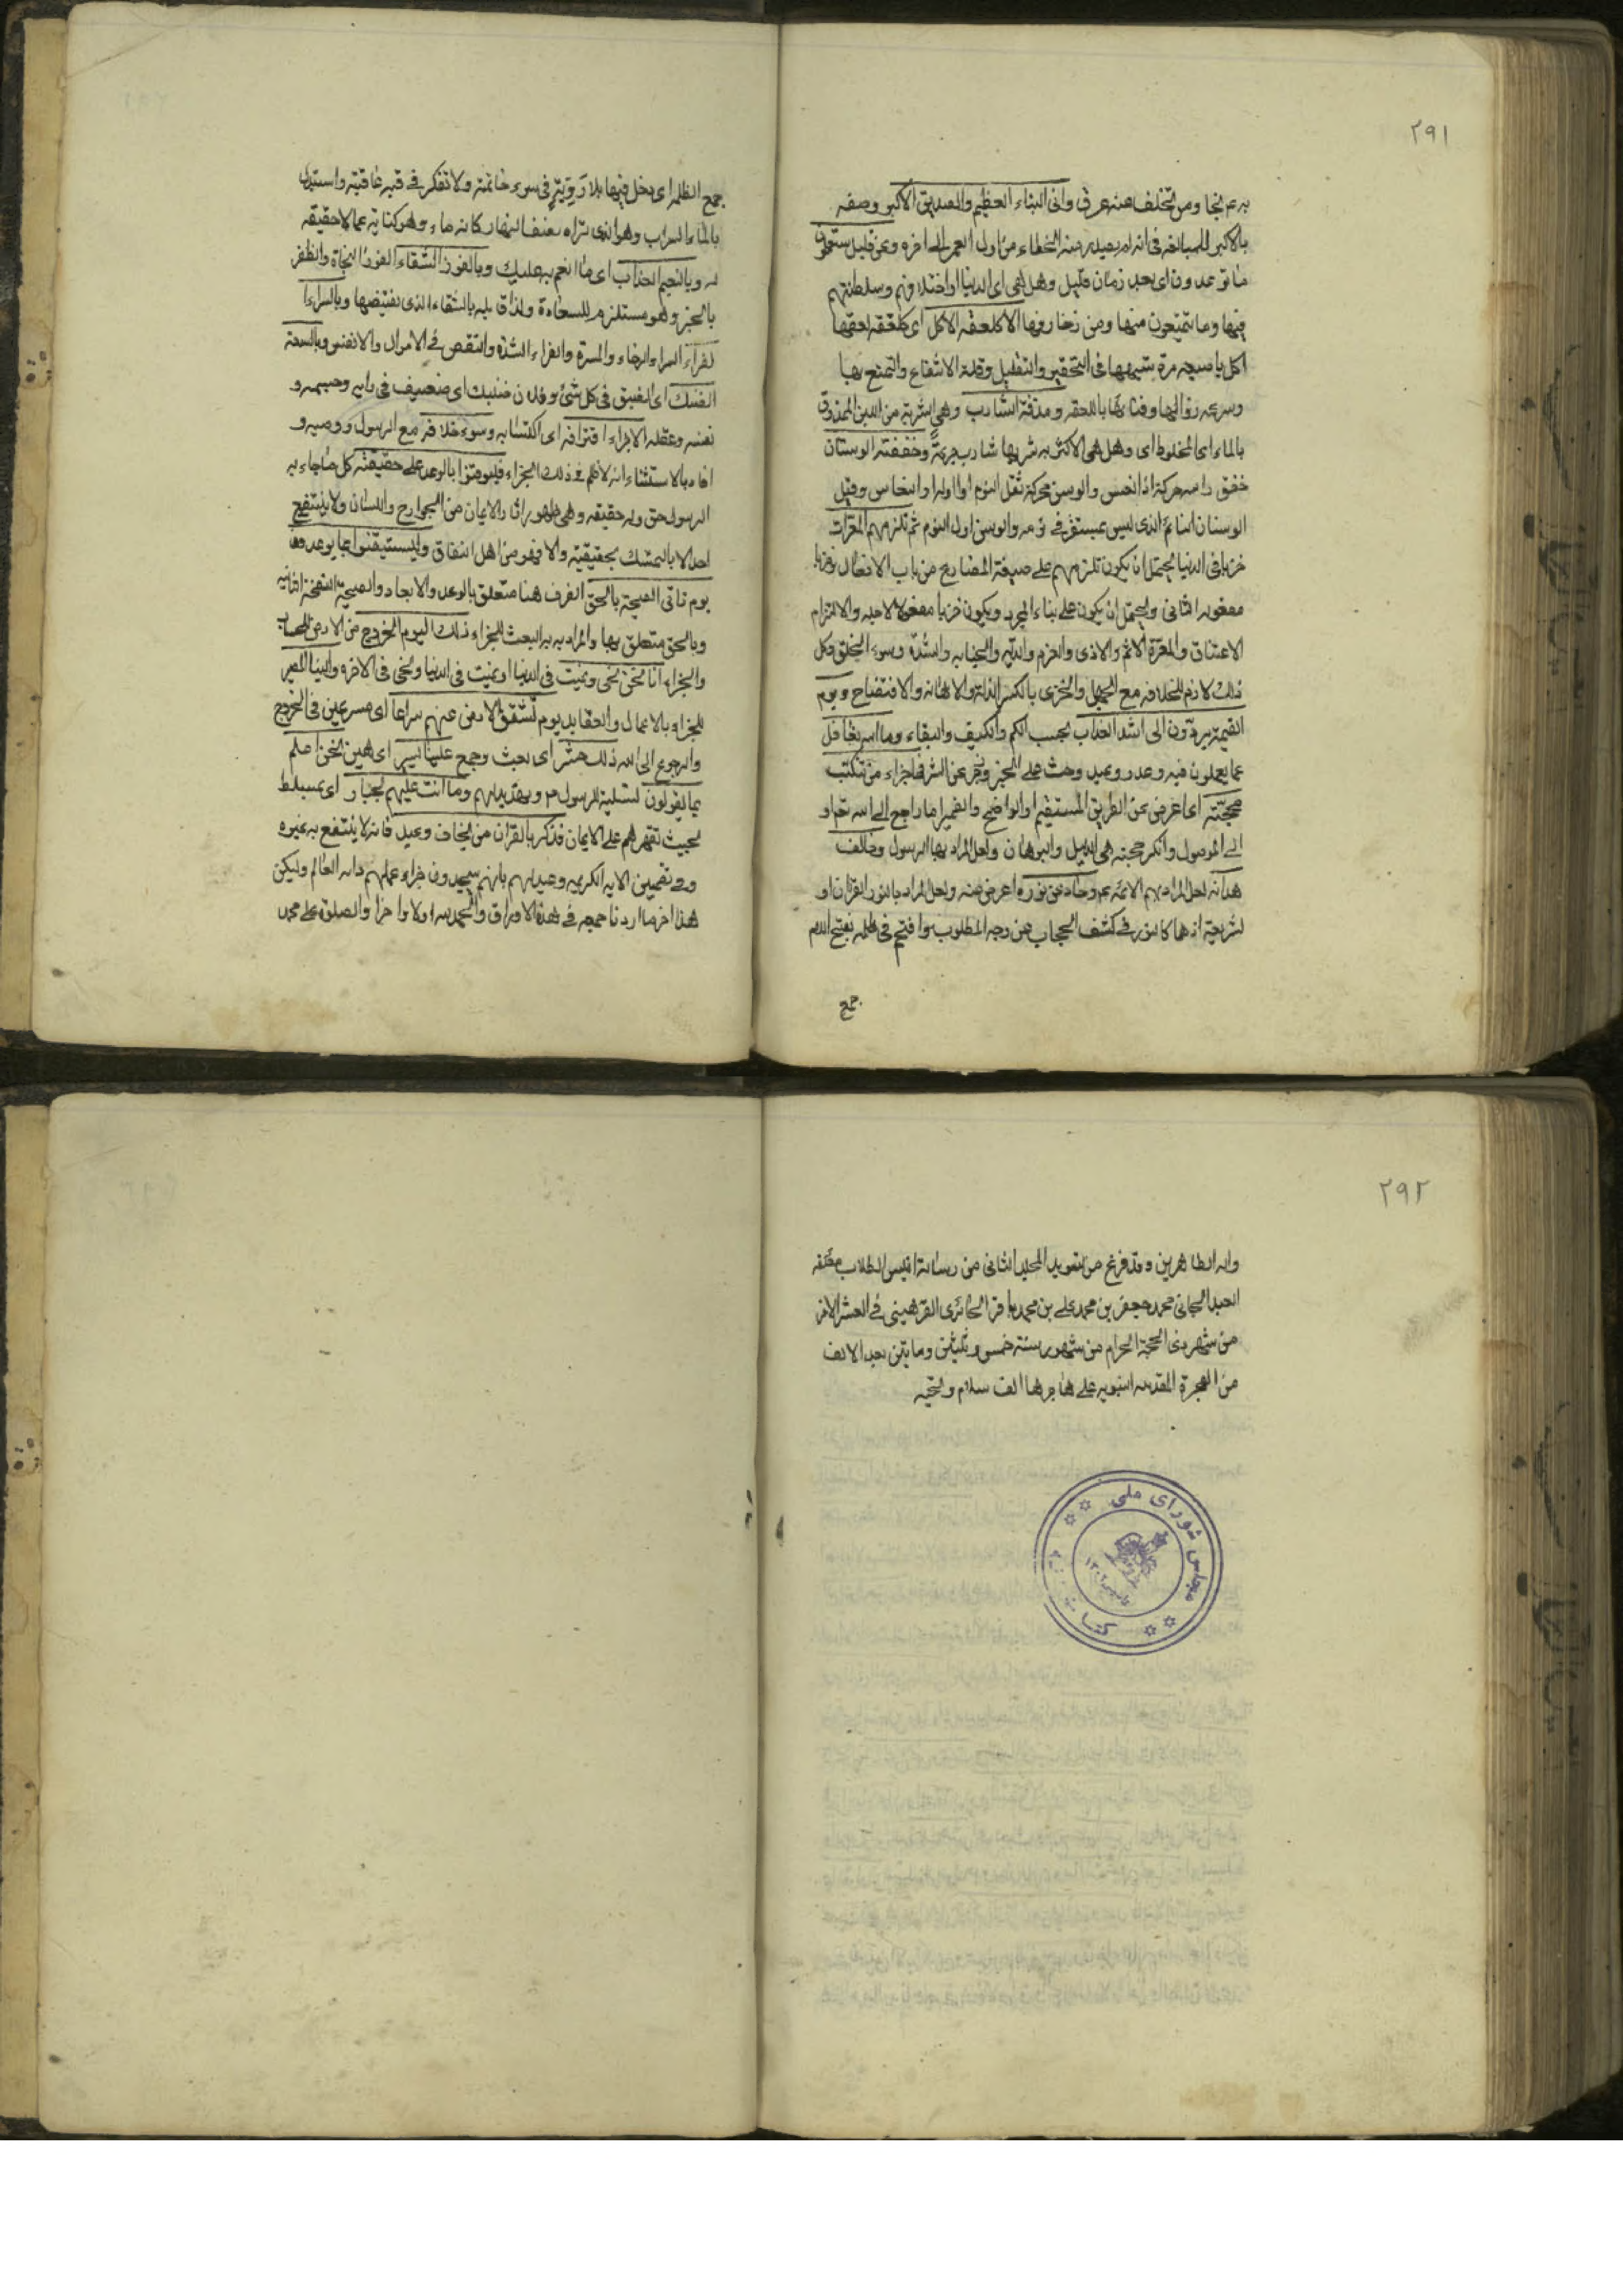 ٢٩١
به عم نجا ومن تخلف عنه غرق وانى النباء العظيم والصديق الاكبر وصفه
بالاكبر للمبالغه فى انه لم يصدر منه الخطاء من اول العمر الى اخره وعن قليل ستعلمون
ما توعدون اى بعد زمان قليل وهل هى اى الدنيا او اختلافهم وسلطانهم
فيها وما يتمتعون منها ومن زخارفها الا كلعقة الاكل اى كلعقه لعقها
اكل باصبعه مرة شبهها فى التحقير والتقليل وقلة الانتفاع والتمتع بها
وسرعه زوالها وفنائها باللعقه ومذقة الشارب وهى الشربة من اللبن الممذوق
بالماء اى المخلوط اى وهل هى الاكشربه شربها شارب جرعة وخفقة الوسنان
خفق راسه حركه اذا نعس والوسن محركة ثقل النوم او اوله او النعاس وقيل
الوسنان النائم الذى ليس بمستغرق فى نومه والوسن اول النوم ثم تلزمهم المعرات
خزيا فى الدنيا يحتمل ان يكون تلزمهم على صيغة المضارع من باب الافعال فخزيا
مفعوله الثانى ويحتمل ان يكون على بناء المجرد ويكون خزيا مفعولا لاجله والالتزام
الاعتناق والمعرة الاثم والاذى والغرم والديه والجنايه والشدة وسوء الخلق وكل
ذلك لازم للخلافه مع الجهل والخزى بالكسر الذلة والاهانه والافتضاح ويوم
القيمة يردون الى اشد العذاب بحسب الكم والكيف والبقاء وما الله بغافل
عما يعملون فيه وعد ووعيد وحث على الخير وزجر عن الشر فما جزاء من تنكب
محجته اى اعرض عن الطريق المستقيم او الواضح والضمير اما راجع الى الله تعم او
الى الموصول وانكر حجته هى الدليل والبرهان ولعل المراد بها الرسول وخالف
هداته لعل المراد بهم الائمه عم وحاد عن نوره اعرض عنه ولعل المراد بالنور القران او
الشريعة اذ هما كالنور فى كشف الحجاب عن وجه المطلوب واقتحم فى ظلمه بفتح اللام
جمع
جمع الظلم اى دخل فيها بلا روية فى سوء خاتمته ولا تفكر فى قبح عاقبته واستبدل
بالماء السراب وهو الذى تراه نصف النهار كانه ماء وهو كناية عما لا حقيقه
له وبالنعيم العذاب اى ما انعم به عليك وبالفوز الشقاء الفوز النجاة والظفر
بالخير وهو مستلزم للسعادة ولذا قابله بالشقاء الذى نقيضها وبالسراء
الضراء السراء الرخاء والمسرة والضراء الشدة والنقص فى الاموال والانفس وبالسعة
الضنك اى الضيق فى كل شئ وفلان ضنيك اى ضعيف فى رايه وجسمه و
نفسه وعقله الا جزاء اقترافه اى اكتسابه وسوء خلافه مع الرسول ووصيه و
افاد بالاستثناء انه لا ظلم فى ذلك الجزاء فليوقنوا بالوعد على حقيقته كل ما جاء به
الرسول حق وله حقيقه وهى ظهور اثار الايمان من الجوارح واللسان ولا ينتفع
احد الا بالتمسك بحقيقته والا فهو من اهل النفاق وليستيقنوا بما يوعدون
يوم تاتى الصيحة بالحق الظرف هنا متعلق بالوعد والايعاد والصيحة النفخة الثانيه
وبالحق متعلق بها والمراد به البعث للجزاء ذلك اليوم الخروج من الارض للحساب
والجزاء انا نحن نحى ونميت فى الدنيا او نميت فى الدنيا ونحى فى الاخره والينا المصير
للجزاء بالاعمال والعقايد يوم تشقق الارض عنهم سراعا اى مسرعين فى الخروج
والرجوع الى الله ذلك حشر اى بعث وجمع علينا يسير اى هين نحن اعلم
بما يقولون لتسلية الرسول ص وتهديدلهم وما انت عليهم بجبار اى بمسلط
بحيث تقهرهم على الايمان فذكر بالقران من يخاف وعيد فانه لا ينتفع به غيره
وفى تضمين الايه الكريمه وعيد لهم بانهم سيجدون جزاء عملهم والله العالم وليكن
هذا اخر ما اردنا جمعه فى هذه الاوراق والحمد لله اولا واخرا والصلوة على محمد
٢٩٢
واله الطاهرين وقد فرغ من تسويد المجلد الثانى من رسالة انيس الطلاب مؤلفه
العبد الجانى محمد جعفر بن محمد على بن محمد باقر الحائرى القرهينى فى العشر الاخر
من شهر ذى الحجة الحرام من شهور سنة خمس وثلثين ومايتن بعد الالف
من الهجرة المقدسه النبويه على هاجرها الف سلام وتحيه
مجلس شورای ملی